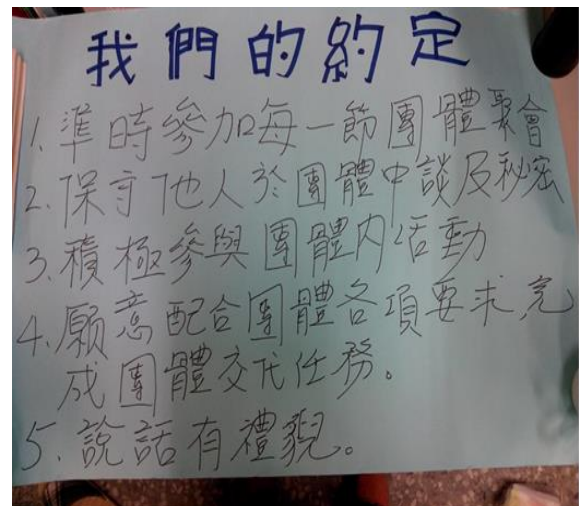 我們的約定
1. 準時參加每一節團體聚會
2. 保守他人於團體中談及秘密
3. 積極參與團體內活動
4. 願意配合團體各項要求,完
成團體交代任務。
5. 說話有禮貌。